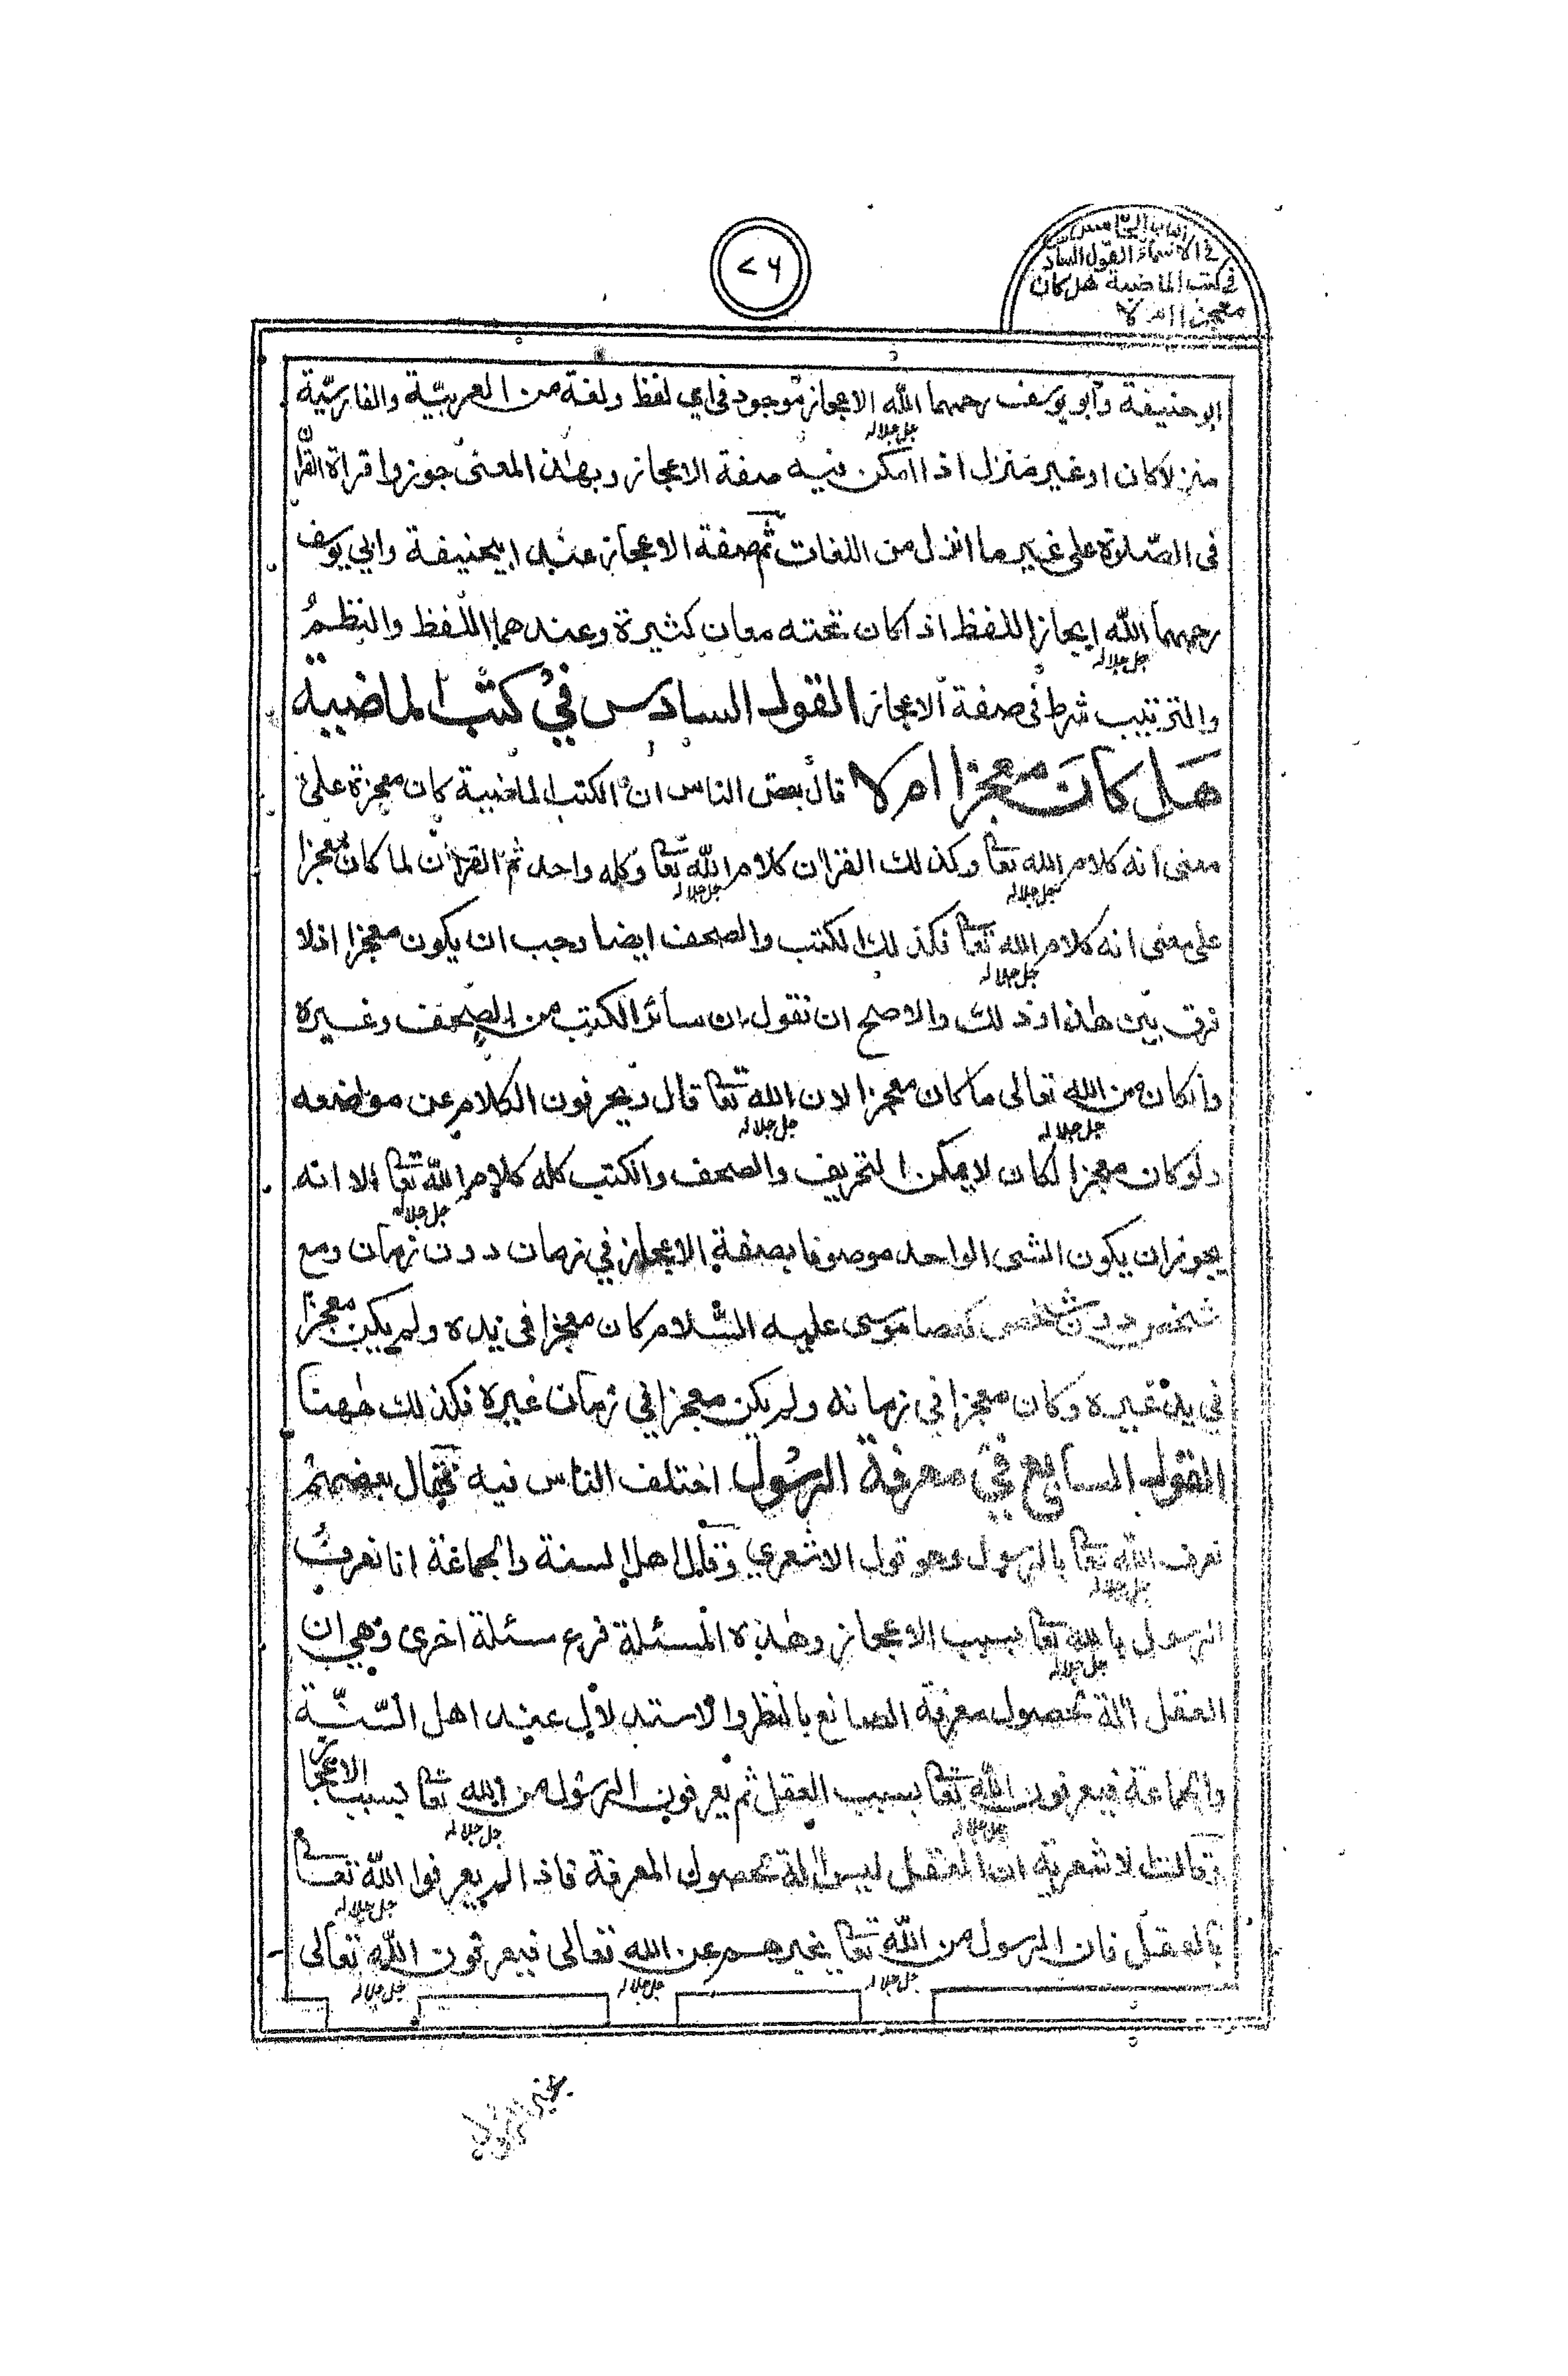 ٧٦
الباب الخامس
في الاسماء القول الساد
في كتب الماضية هل كان
معجزا ام لا
ابو حنيفة وابو يوسف رحمهما الله الاعجاز موجود في اي لفظ ولغة من العربيّة والفارسيّة
جل جلاله
منزلا كان او غير منزل اذا امكن فيه صفة الاعجاز وبهذا المعنى جوزوا قراة القرآن
في الصّلوة على غير ما انزل من اللغات ثم صفة الاعجاز عند ابيحنيفة وابي يوسف
رحمهما الله ايجاز اللفظ اذا كان تحته معان كثيرة وعندهما اللّفظ والنظم
جل جلاله
والترتيب شرط في صفة الاعجاز القول السادس في كتب الماضية
هل كان معجزا ام لا قال بعض الناس ان الكتب الماضية كان معجزة على
معنى انه كلام الله تعا وكذلك القران كلام الله تعا وكله واحد ثم القران لما كان معجزا
جل جلاله جل جلاله
على معنى انه كلام الله تعا فكذلك الكتب والصحف ايضا وجب ان يكون معجزا اذ لا
جل جلاله
فرق بين هذا وذلك والاصح ان نقول ان سائر الكتب من الصحف وغيره
وانكان من الله تعالى ما كان معجزا لان الله تعا قال يحرفون الكلام عن مواضعه
جل جلاله جل جلاله
ولو كان معجزا لكان لا يمكن التحريف والصحف والكتب كله كلام الله تعا الا انه
جل جلاله
يجوز ان يكون الشى الواحد موصوفا بصفة الاعجاز في زمان دون زمان ومع
شخص دون شخص كعصا موسى عليه السّلام كان معجزا في يده ولم يكن معجزا
في يد غيره وكان معجزا في زمانه ولم يكن معجزا في زمان غيره فكذلك ههنا
القول السابع في معرفة الرسول اختلف الناس فيه فقال بعضهم
نعرف الله تعا بالرسول وهو قول الاشعري وقال اهل السنة والجماعة انا نعرف
جل جلاله
الرسول بالله تعا بسبب الاعجاز وهذه المسئلة فرع سئلة اخرى وهي ان
جل جلاله
العقل الة تحصول معرفة الصانع بالنظر والاستدلال عند اهل السّنّة
والجماعة فيعرفون الله تعا بسبب العقل ثم يعرفون الرسول من الله تعا بسبب الاعجاز
جل جلاله جل جلاله
وقالت لاشعرية ان العقل ليس الة تحصول المعرفة فاذا لم يعرفوا الله تعا
جل جلاله
بالعقل فان الرسول من الله تعا يخبرهم عن الله تعالى فيعرفون الله تعالى
جل جلاله جل جلاله جل جلاله